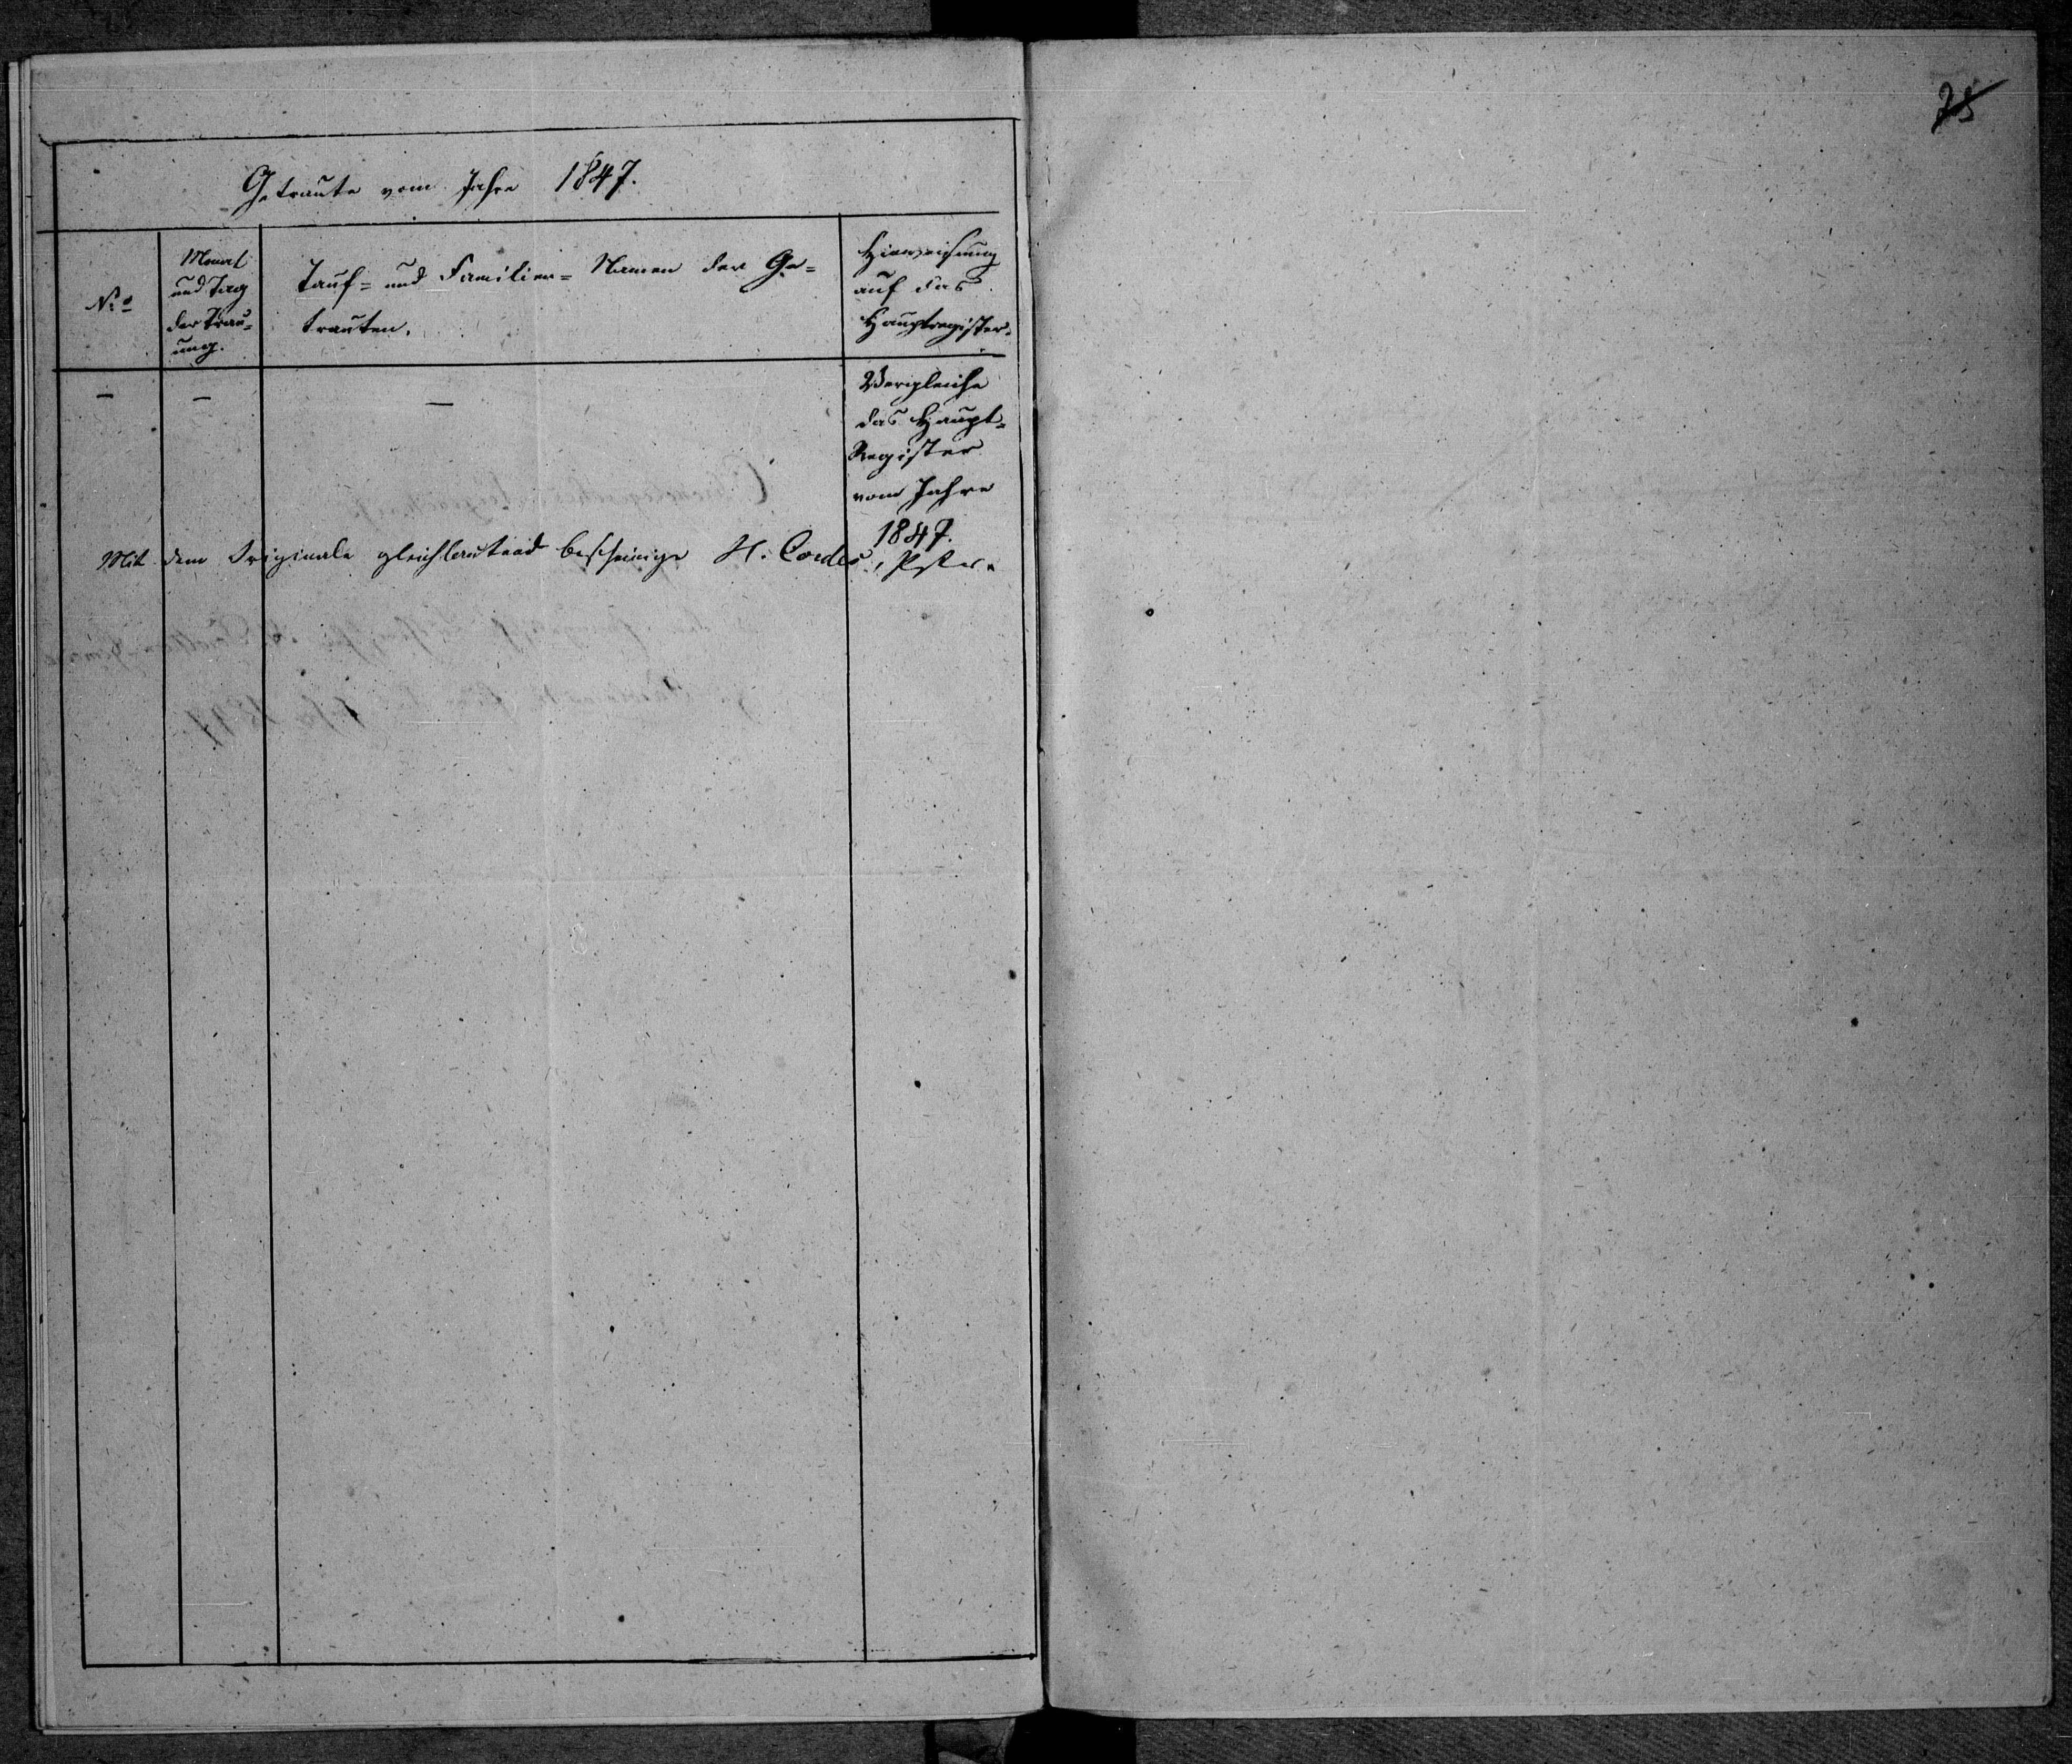 75
Getraute vom Jahre 1847.
No
Monat
und Tag
der Trau=
ung.
Tauf= und Familien= Namen der Ge=
trauten.
Hinweisung
auf das
Hauptregister.
— — —
Vergleiche
das Haupt=
Register
vom Jahre
1847.
Mit dem Originale gleichlautend bescheinige H. Cordes, Pastor.